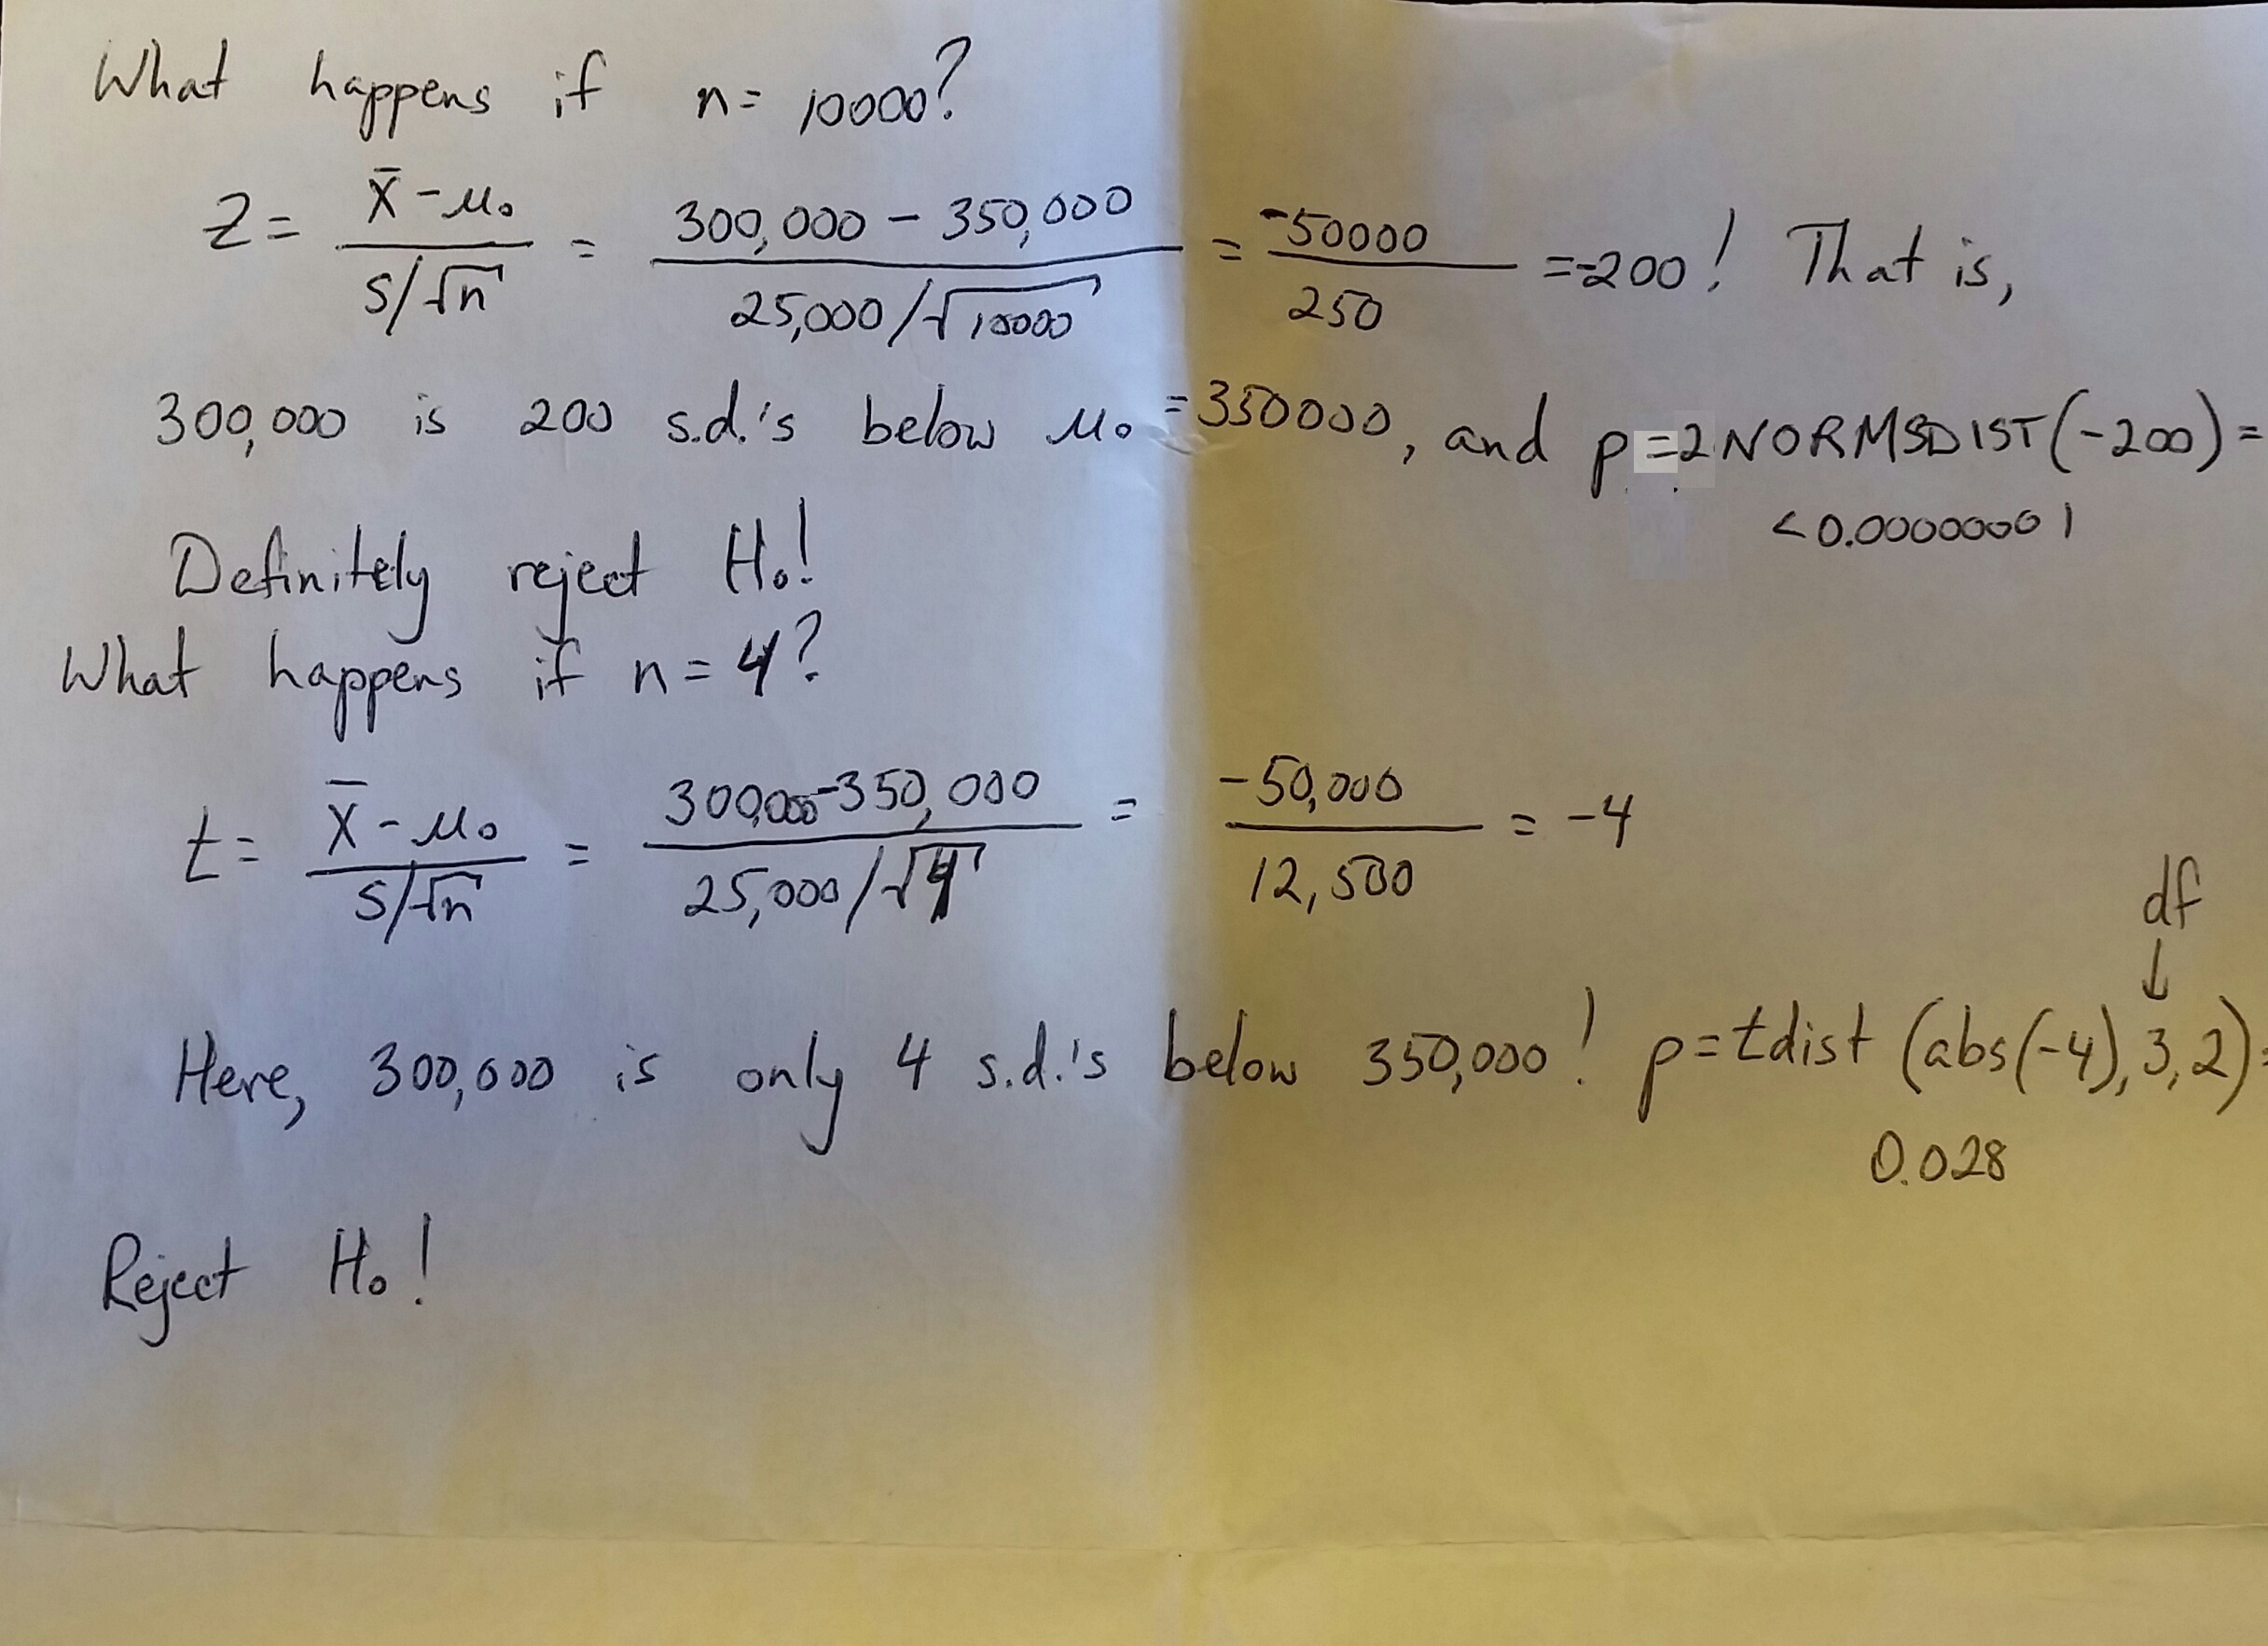 What happens if n= 10000?
Z= x̄-μ₀ / s/√n = 300,000 - 350,000 / 25,000/√10000 = -50000 / 250 =-200! That is,
300,000 is 200 s.d.'s below μ₀ =350000, and p=2NORMSDIST(-200)=
<0.00000001
Definitely reject H₀!
What happens if n=4?
t= x̄-μ₀ / s/√n = 300,000-350,000 / 25,000/√4 = -50,000 / 12,500 = -4
df
↓
Here, 300,000 is only 4 s.d.'s below 350,000! p=tdist (abs(-4),3,2)=
0.028
Reject H₀!